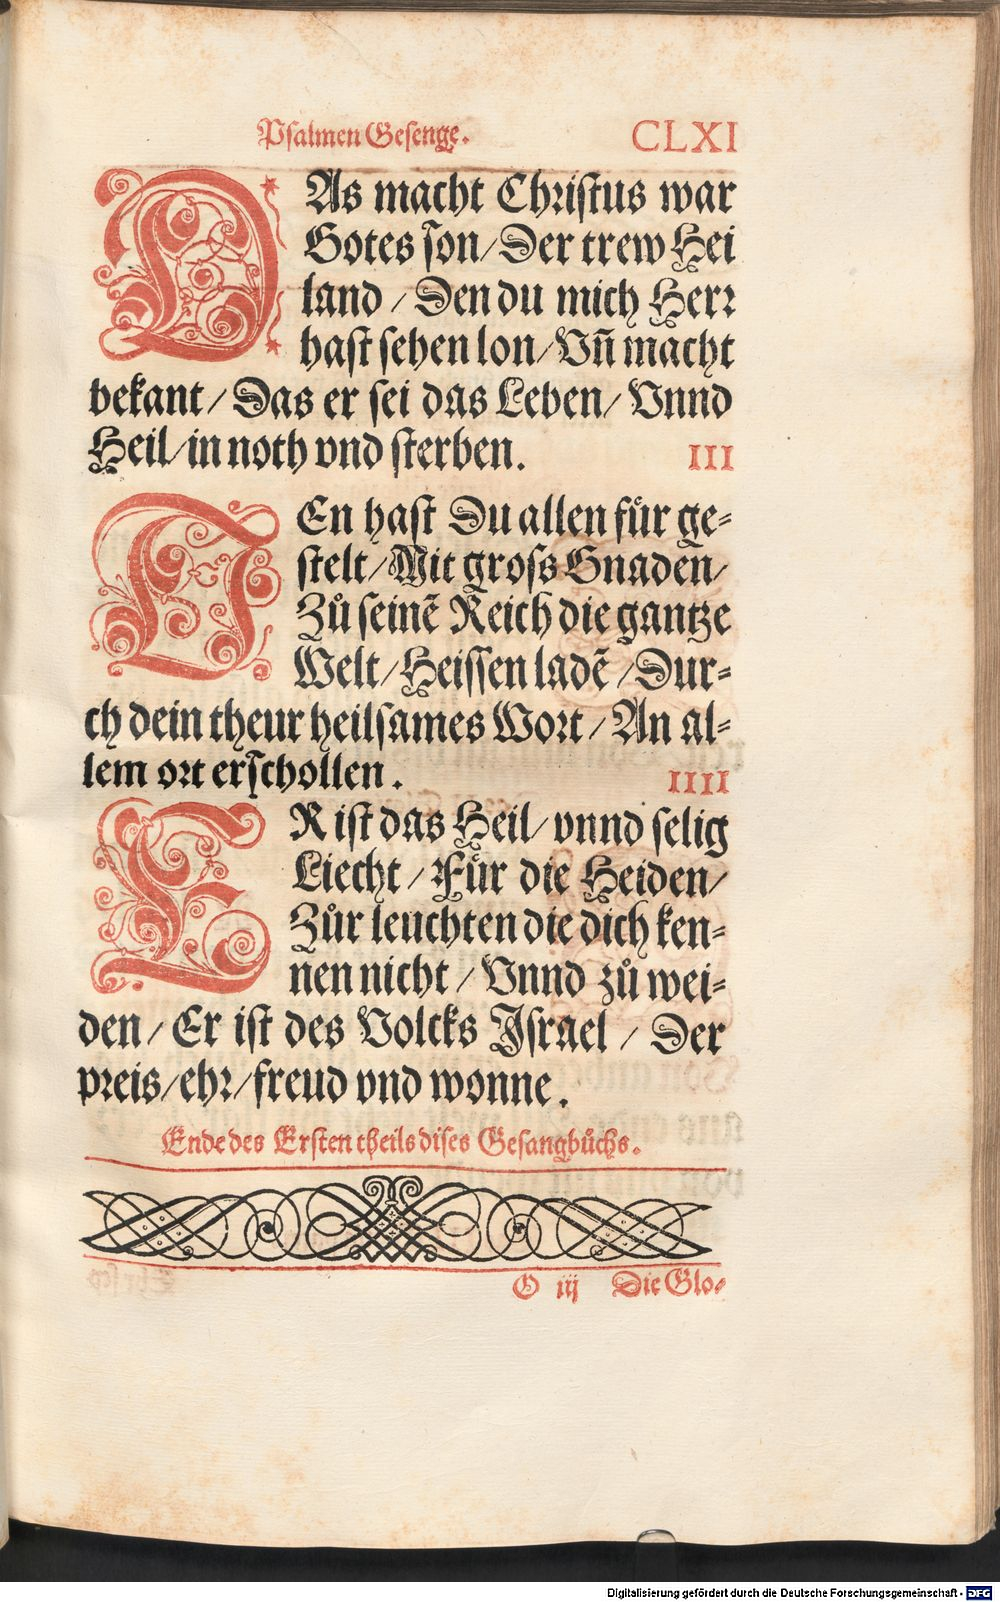 Psalmen Gesenge. CLXI
DAs macht Christus war
Gotes son/ Der trew Hei
land / Den du mich Herr
hast sehen lon/ Vñ macht
bekant/ Das er sei das Leben/ Vnnd
Heil/ in noth vnd sterben. III
DEn hast Du allen für ge-
stelt/ Mit gross Gnaden/
Zů seinẽ Reich die gantze
Welt/ Heissen ladẽ / Dur-
ch dein theur heilsames Wort / An al-
lem ort erschollen. IIII
ER ist das Heil/ vnnd selig
Liecht / Für die Heiden/
Zůr leuchten die dich ken-
nen nicht / Vnnd zů wei-
den/ Er ist des Volcks Israel / Der
preis/ ehr/ freud vnd wonne.
Ende des Ersten theils dises Gesangbůchs.
O iij Die Glo-
Digitalisierung gefördert durch die Deutsche Forschungsgemeinschaft - DFG